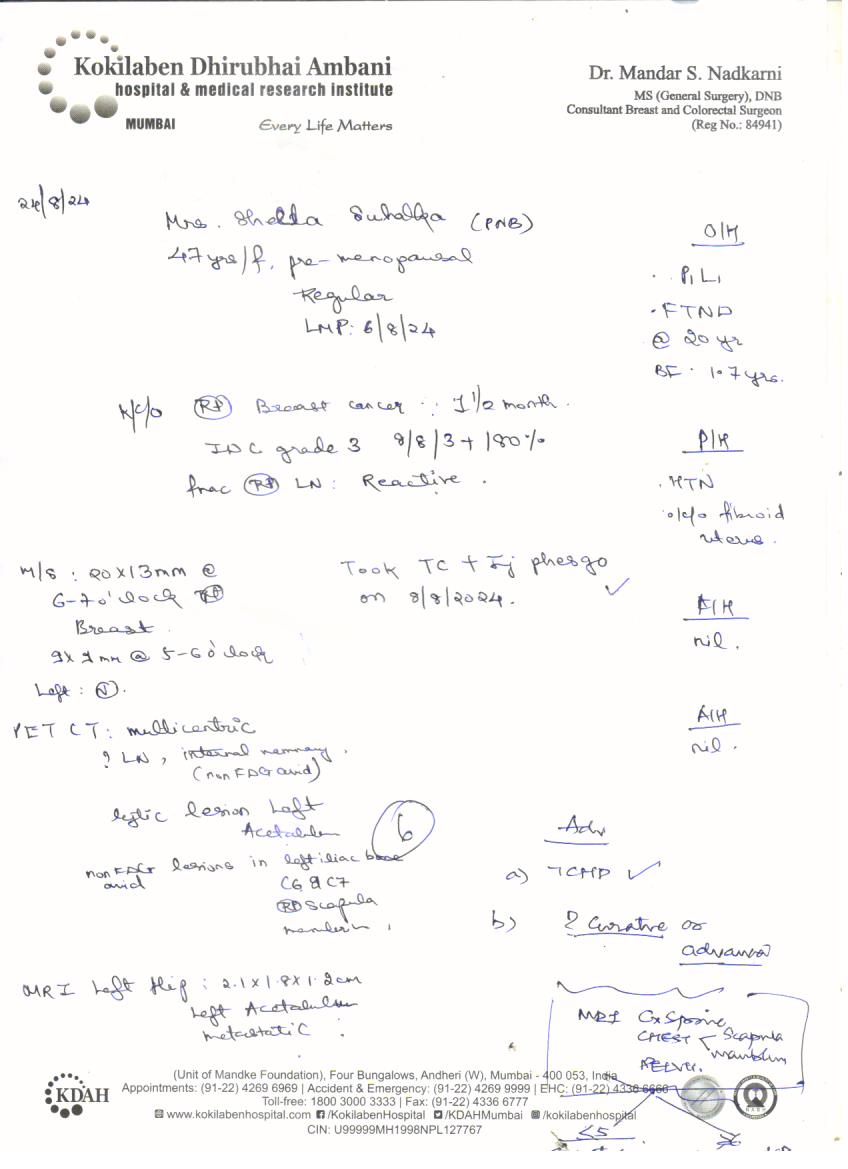 Kokilaben Dhirubhai Ambani
hospital & medical research institute
MUMBAI Every Life Matters
Dr. Mandar S. Nadkarni
MS (General Surgery), DNB
Consultant Breast and Colorectal Surgeon
(Reg No.: 84941)
24/8/24
Mrs. (PNB)
47 yrs/f, pre-menopausal
Regular
LMP: 6/8/24
O/H
· P1 L1
· FTND
@ 20 yr
BF · 1.7 yrs.
K/c/o (Rt) Breast cancer : 1 1/2 month.
IDC grade 3 8/8/3+ /80%
fnac (Rt) LN : Reactive .
P/H
· HTN
· o/c/o fibroid
uterus.
M/S : 20 x 13mm @
6-7 o'clock (Rt)
Breast.
9x9mm @ 5-6 o'clock
Left : (N).
Took TC + Inj phesgo
on 8/8/2024. ✓
F/H
nil .
A/H
nil .
PET CT : multicentric
? LN , internal mammary .
(non FDG avid)
lytic lesion Left
Acetabulum
6
non FDG avid lesions in left iliac bone
C6 & C7
(Rt) Scapula
MRI Left Hip : 2.1 x 1.8 x 1.2 cm
Left Acetabulum
metastatic .
Adv
a) TCHP ✓
b) ? Curative or
advanced
MRI Cx Spine
CHEST < Scapula
manubrium
PELVIS.
≤5
(Unit of Mandke Foundation), Four Bungalows, Andheri (W), Mumbai - 400 053, India
Appointments: (91-22) 4269 6969 | Accident & Emergency: (91-22) 4269 9999 | EHC: (91-22) 4336 6666
Toll-free: 1800 3000 3333 | Fax: (91-22) 4336 6777
www.kokilabenhospital.com /KokilabenHospital /KDAHMumbai /kokilabenhospital
CIN: U99999MH1998NPL127767
KDAH